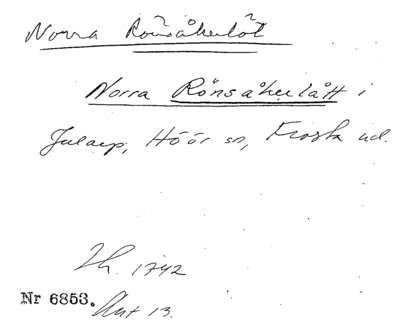 Norra Rönsåkerlöt
Norra Rönsåkerlått i
Julaep, Höör sn, Frosta hd.
Lh. 1742
Nr 6853. Akt 13.